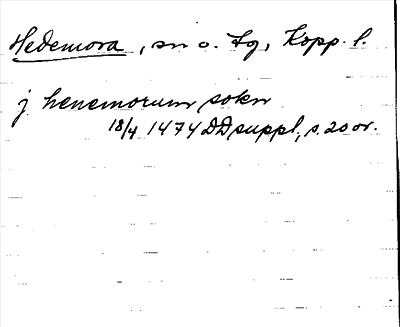 Hedemora, sn o. tg, Kopp. l.
j henemorum sokn
18/4 1474 DD suppl, s. 20 or.